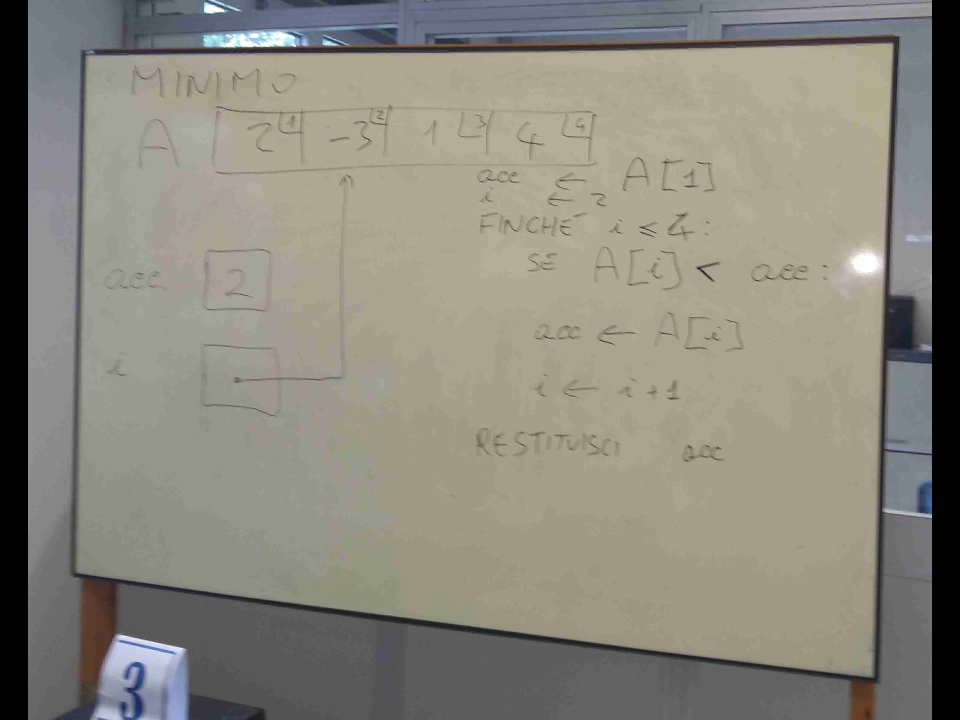 MINIMO
A 2 1 -3 2 1 3 4 4
acc ← A[1]
i ← 2
FINCHÉ i ≤ 4:
SE A[i] < acc:
acc 2
acc ← A[i]
i
i ← i+1
RESTITUISCI acc
3